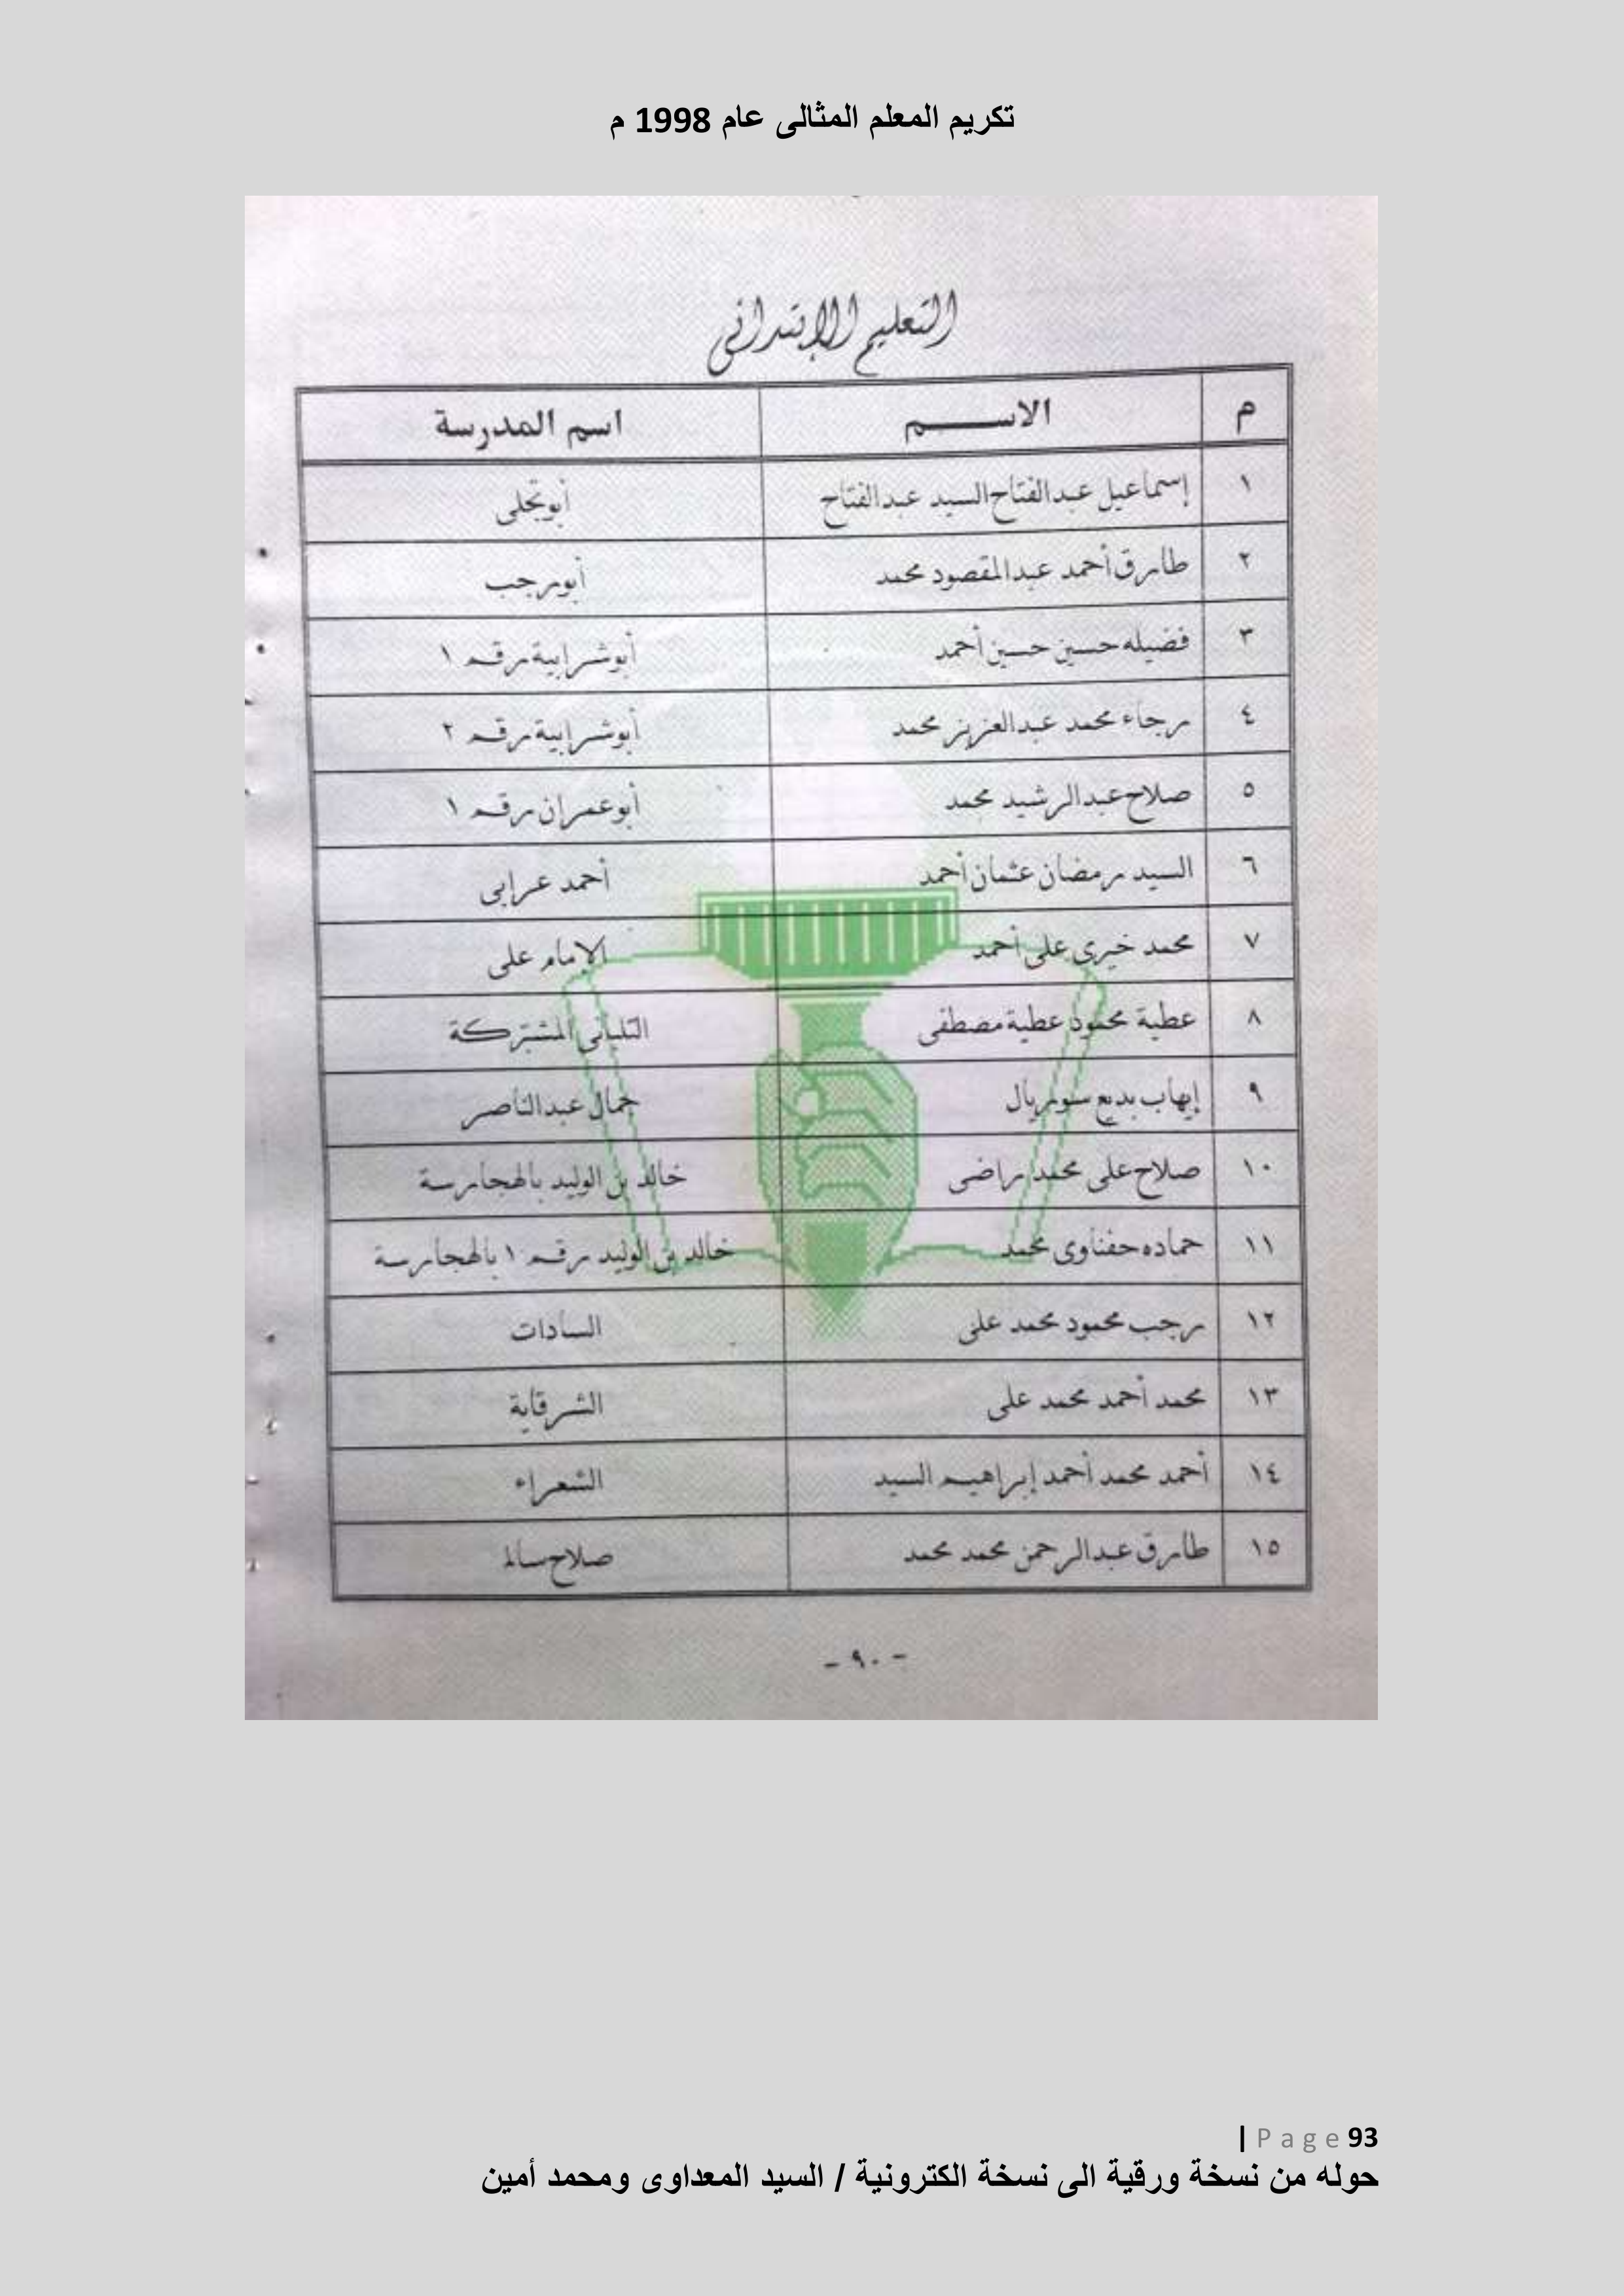 تكريم المعلم المثالى عام 1998 م
التعليم الإبتدائى
م الاســـم اسم المدرسة
١ إسماعيل عبدالفتاح السيد عبدالفتاح أبوتجلى
٢ طارق أحمد عبدالمقصود محمد أبورجب
٣ فضيله حسين حسين أحمد أبوشرابية رقم ١
٤ رجاء محمد عبدالعزيز محمد أبوشرابية رقم ٢
٥ صلاح عبدالرشيد محمد أبوعمران رقم ١
٦ السيد رمضان عثمان أحمد أحمد عرابى
٧ محمد خيرى على أحمد الإمام على
٨ عطية محمود عطية مصطفى التلبانى المشتركة
٩ إيهاب بديع سوريال جمال عبدالناصر
١٠ صلاح على محمد راضى خالد بن الوليد بالهجارسة
١١ حماده حفناوى محمد خالد بن الوليد رقم ١ بالهجارسة
١٢ رجب محمود محمد على السادات
١٣ محمد أحمد محمد على الشرقاية
١٤ أحمد محمد أحمد إبراهيم السيد الشعراء
١٥ طارق عبدالرحمن محمد محمد صلاح سالم
- ٩٠ -
| Page 93
حوله من نسخة ورقية الى نسخة الكترونية / السيد المعداوى ومحمد أمين